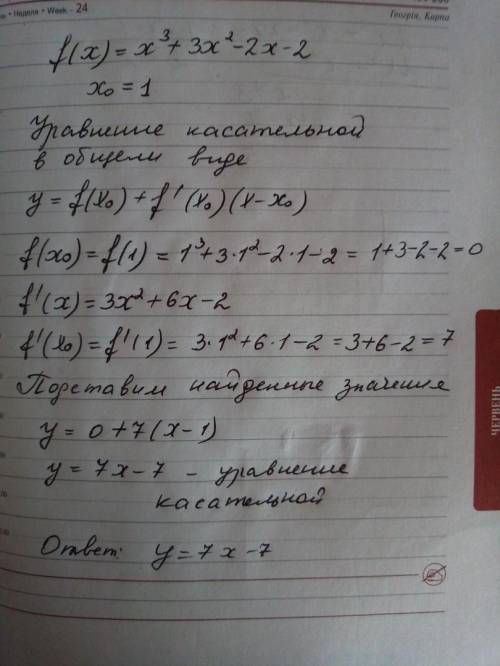 • Неделя • Week - 24
Георгія, Карпа
f(x) = x³ + 3x² - 2x - 2
x₀ = 1
Уравнение касательной
в общем виде
y = f(x₀) + f'(x₀)(x - x₀)
f(x₀) = f(1) = 1³ + 3·1² - 2·1 - 2 = 1+3-2-2=0
f'(x) = 3x² + 6x - 2
f'(x₀) = f'(1) = 3·1² + 6·1 - 2 = 3+6-2 = 7
Подставим найденные значения
y = 0 + 7(x - 1)
y = 7x - 7 - уравнение
касательной
Ответ: y = 7x - 7
ЧЕРВЕНЬ